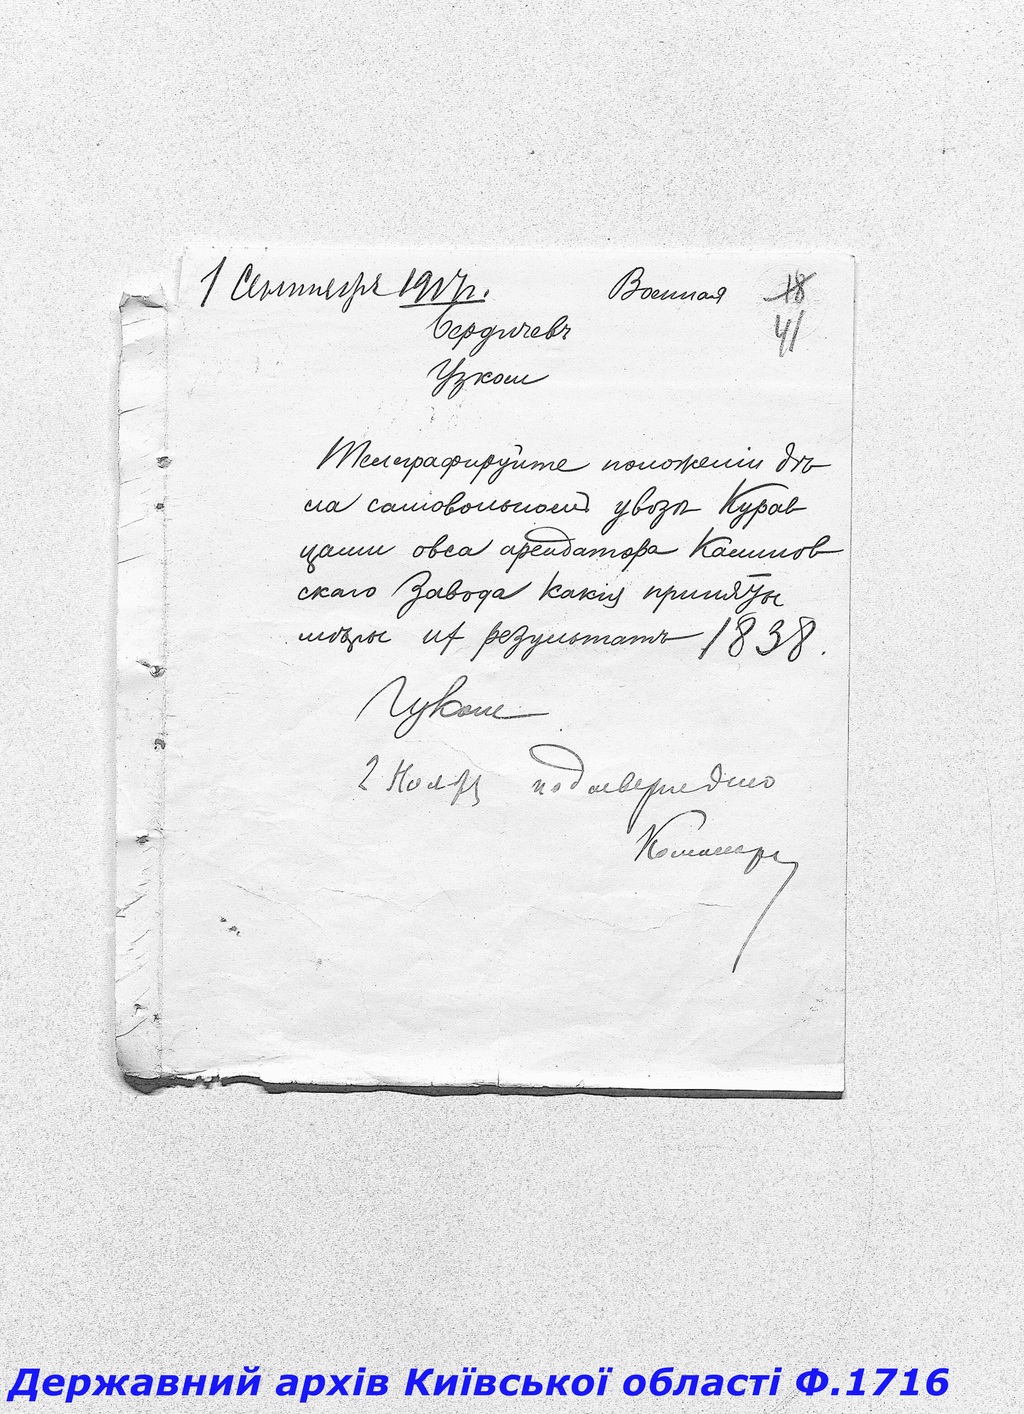 1 Сентября 1917 г. Военная 18
41
Бердичевъ
Узком
Телеграфируйте положеніи дѣ
ла самовольной увозы Курав
цами овса арендатора Калинов
скаго Завода какія приняты
мѣры и результатъ 1838.
Гуком
2 Ноября подтверждено
Державний архів Київської області Ф.1716